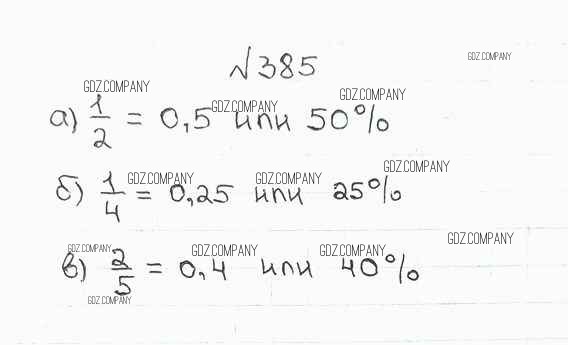 №385
GDZ.COMPANY
GDZ.COMPANY
GDZ.COMPANY
GDZ.COMPANY
а) 1/2 = 0,5 или 50%
GDZ.COMPANY
GDZ.COMPANY
GDZ.COMPANY
б) 1/4 = 0,25 или 25%
GDZ.COMPANY
GDZ.COMPANY
GDZ.COMPANY
GDZ.COMPANY
в) 2/5 = 0,4 или 40%
GDZ.COMPANY